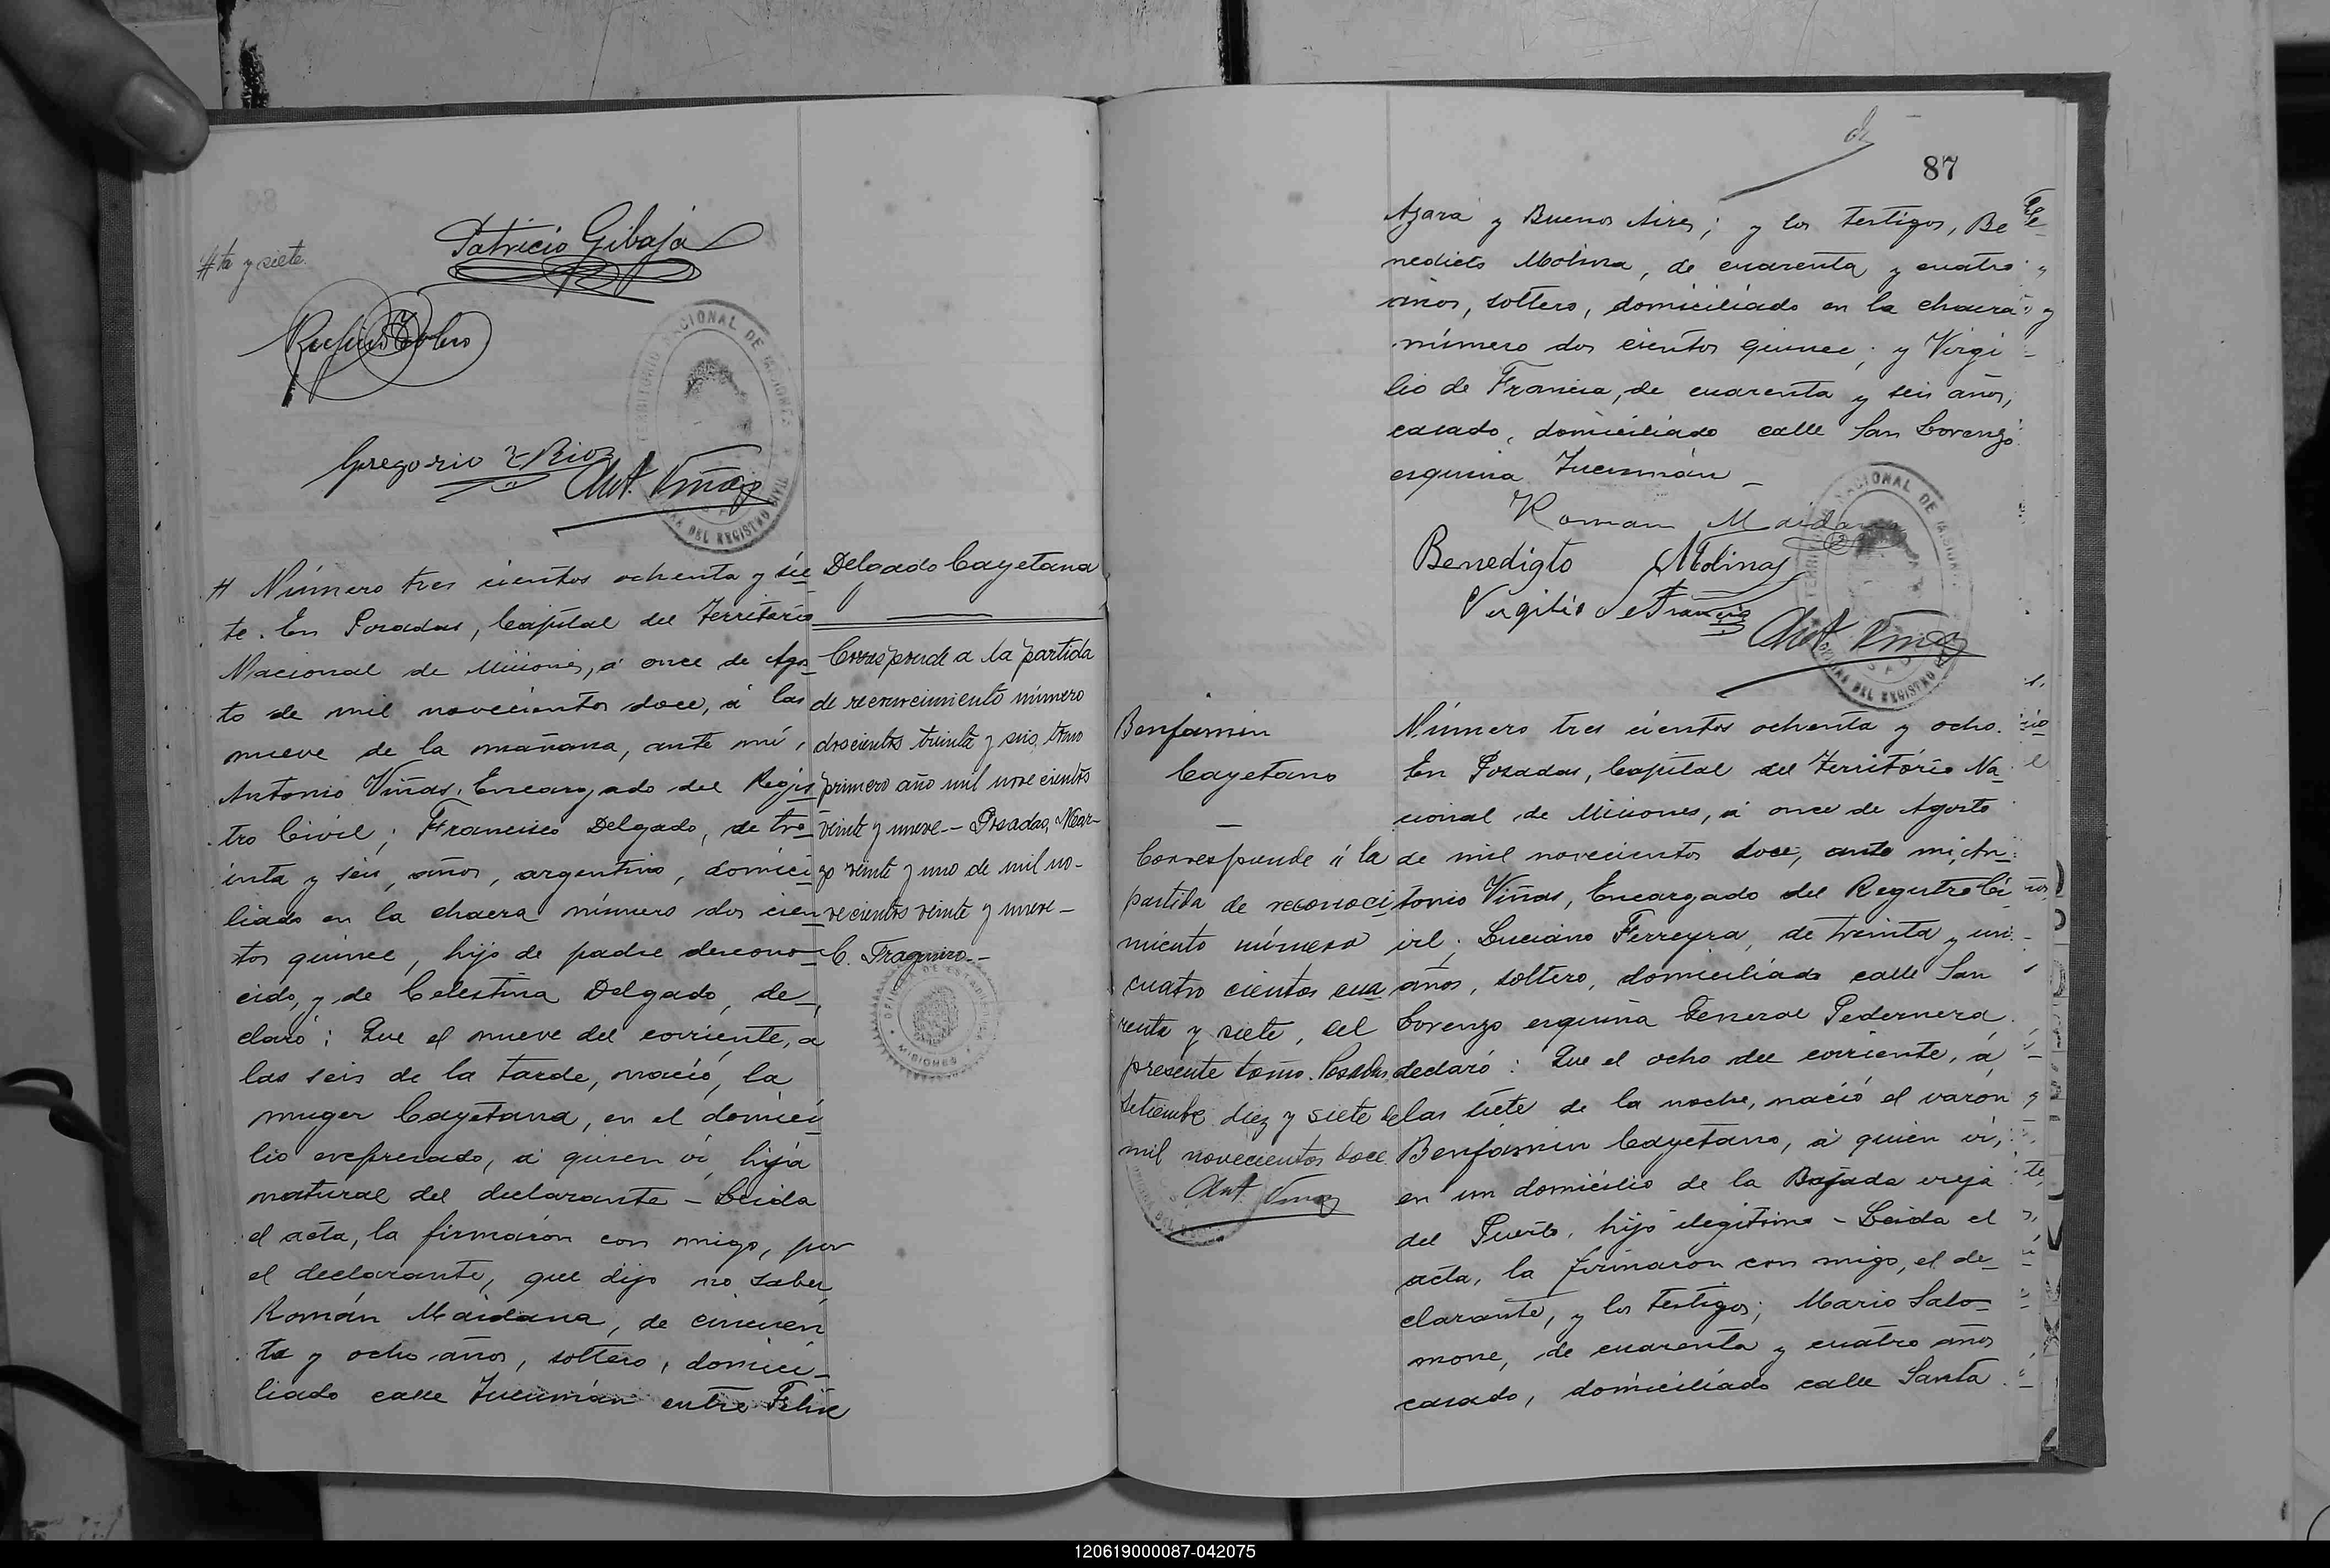 #ta y siete.
Patricio Gibaja
Gregorio Rios
Ant. Viñas
TERRITORIO NACIONAL DE MISIONES
DEL REGISTRO CIVIL
# Número tres cientos ochenta y sie
te. En Posadas, Capital del Territorio
Nacional de Misiones, á once de Agos
to de mil novecientos doce, á las
nueve de la mañana, ante mí,
Antonio Viñas, Encargado del Regis
tro Civil; Francisco Delgado, de tre
inta y seis, años, argentino, domici
liado en la chacra número dos cien
tos quince, hijo de padre descono
cido, y de Celestina Delgado, de_
claró: Que el nueve del corriente, a
las seis de la tarde, nació, la
muger Cayetana, en el domici
lio expresado, á quien ví, hija
natural del declarante – Leida
el acta, la firmaron con migo, por
el declarante, que dijo no saber,
Román Maidana, de cincuen
ta y ocho años, soltero, domici_
liado calle Tucumán entre Felix
Delgado Cayetana
Corresponde a la partida
de reconocimiento número
doscientos treinta y seis, tomo
primero año mil nove cientos
veinte y nueve – Posadas, Mar-
zo veinte y uno de mil no-
vecientos veinte y nueve –
MISIONES
87
Azara y Buenos Aires; y los testigos, Be
nedicto Molina, de cuarenta y cuatro
años, soltero, domiciliado en la chacra
número dos cientos quince; y Virgi
lio de Francia, de cuarenta y seis años,
casado, domiciliado calle San Lorenzo
esquina Tucumán –
Roman Maidana
Benedigto Molinas
Virgilio de Francia
Ant. Viñas
NACIONAL DE MISIONES
DEL REGISTRO
Benjamin
Cayetano
Corresponde á la
partida de reconoci
miento número
cuatro cientos cua
renta y siete, del
presente tomo. Posadas,
Setiembre diez y siete de
mil novecientos doce.
Ant. Viñas
Número tres cientos ochenta y ocho.
En Posadas, Capital del Territorio Na_
cional de Misiones, á once de Agosto
de mil novecientos doce, ante mi, An_
tonio Viñas, Encargado del Registro Ci
vil; Luciano Ferreyra, de treinta y un
años, soltero, domiciliado calle San
Lorenzo esquina General Pedernera,
declaró: Que el ocho del corriente, á
las siete de la noche, nació el varon
Benjamin Cayetano, á quien ví,
en un domicilio de la Bajada vieja
del Puerto, hijo ilegitimo – Leida el
acta, la firmaron con migo, el de_
clarante, y los testigos; Mario Salo_
mone, de cuarenta y cuatro años
casado, domiciliado calle Santa
120619000087-042075